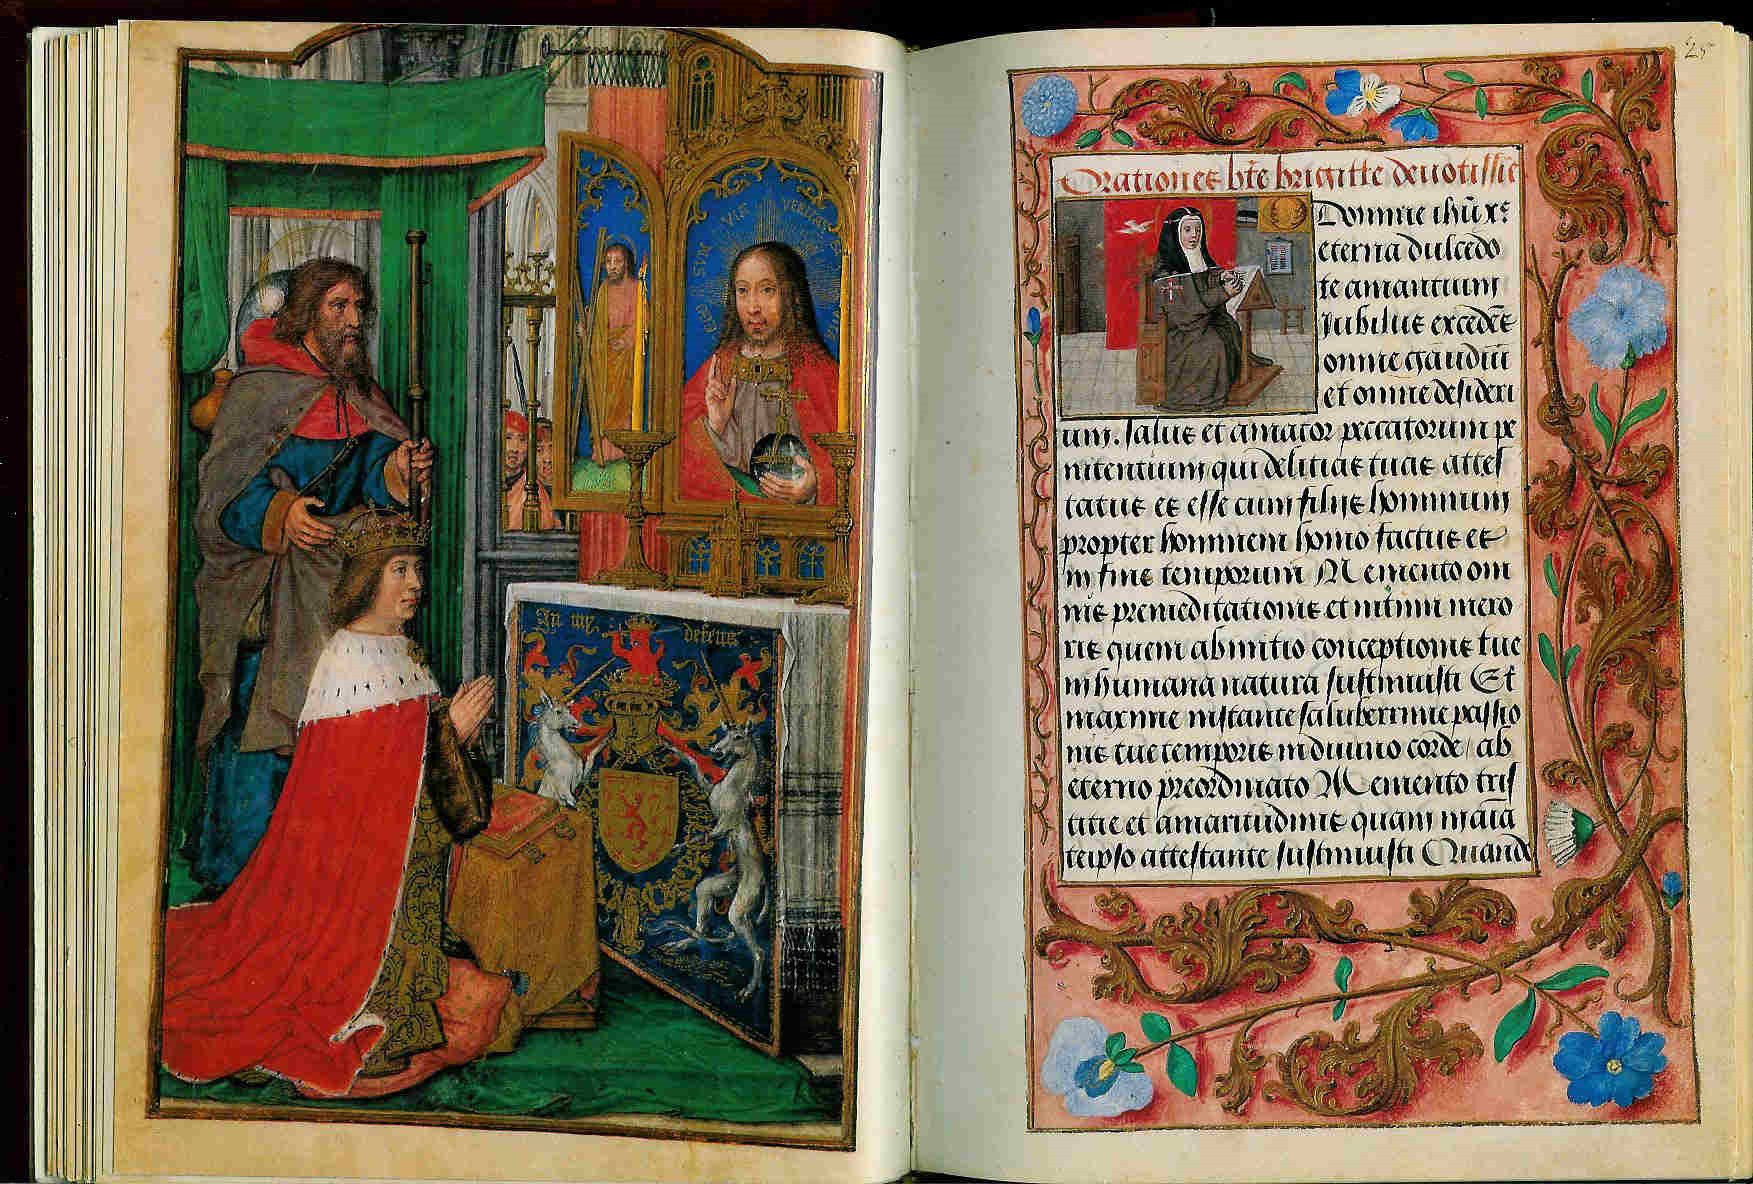 In my defens
EGO SVM VIA VERITAS
25
Orationes bte brigitte deuotissie
Domine ihu xp̄e
eterna dulcedo
te amantium
Iubilus excedēs
omne gaudiū
et omne desideri
um. Salus et amator peccatorum pe
nitentium qui delitias tuas attes
tatus es esse cum filijs hominum
propter hominem homo factus es
in fine temporum Memento om
nis premeditationis et intimi mero
ris quem abinitio conceptionis tue
in humana natura sustinuisti Et
maxime instante saluberrime passio
nis tue temporis in diuino corde / ab
eterno preordinato Memento tris
titie et amaritudinis quam in aīa
teipso attestante sustinuisti Quand